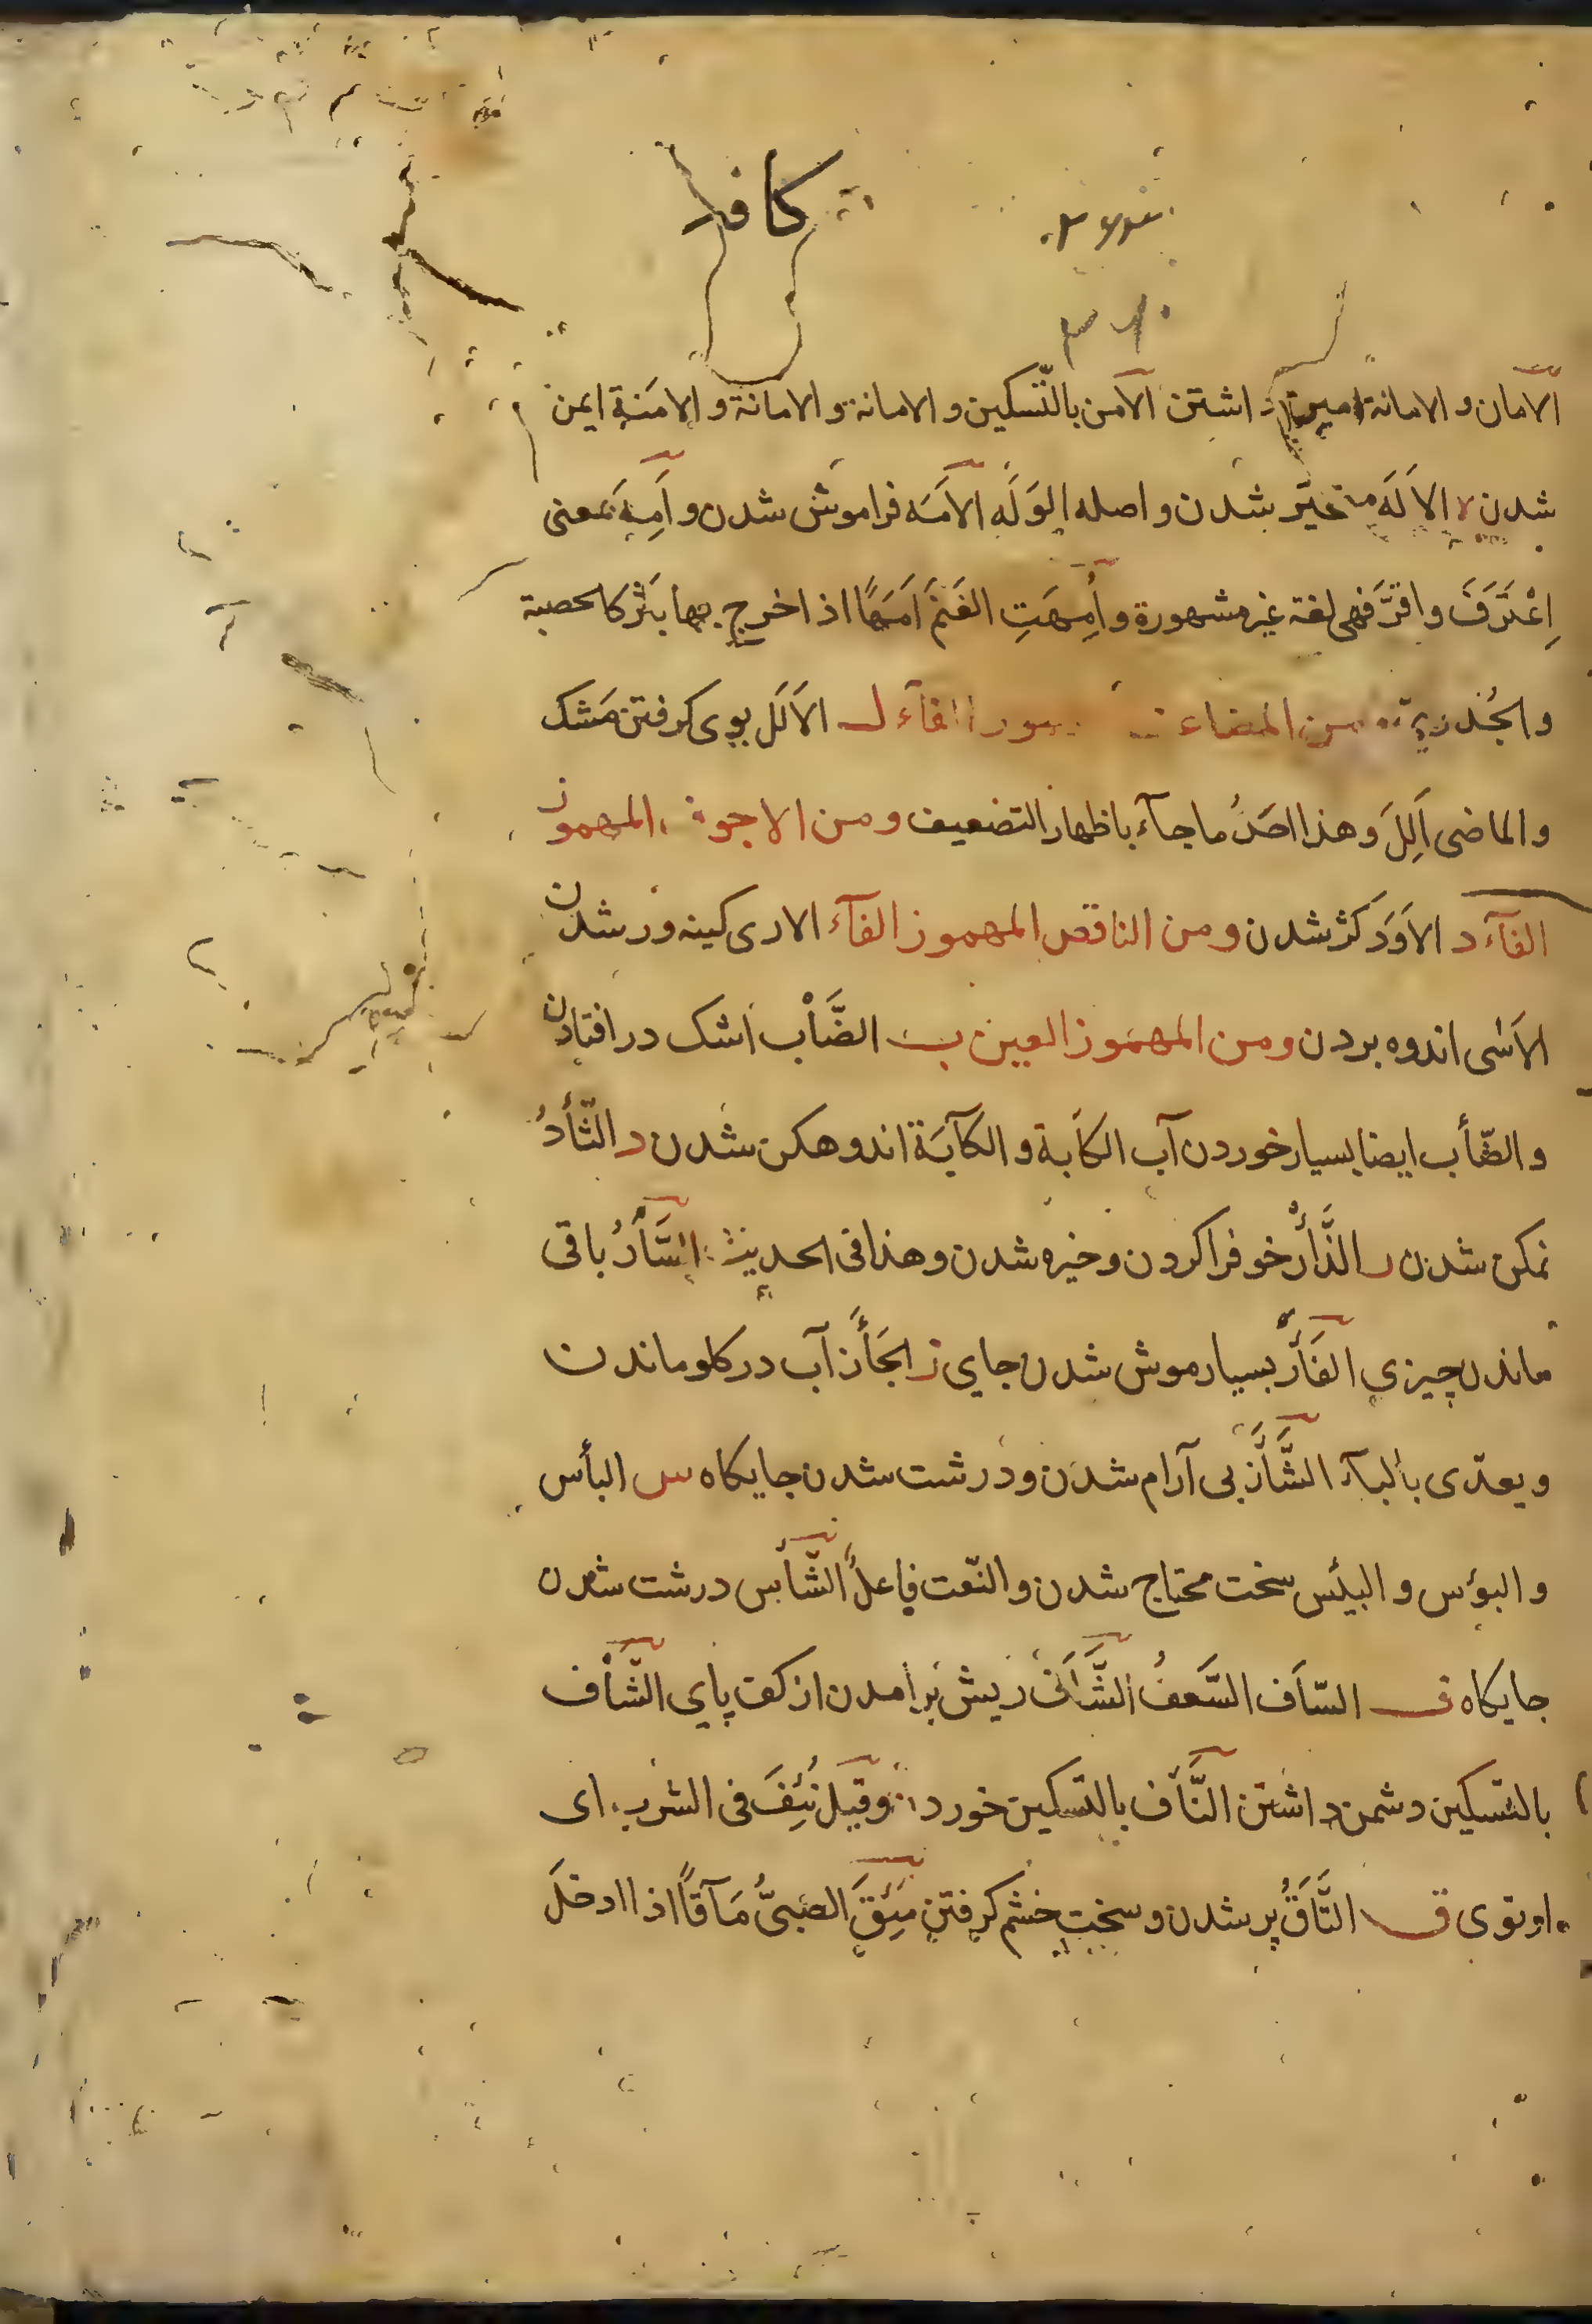 الآمان و الامانة امین داشتن الآمن بالتّسكین و الامانة و الامانة و الامَنة ایمن
شدن لا الاَلَه متحیّر شدن و اصله الوَلَه الاَمَه فراموش شدن و اَمِهَ بمعنی
اِعْتَرَفَ و اقرَّ فهی لغة غیر مشهورة و اُمِهَتِ الغَنَمُ اَمَهًا اذا خرج بها بَثْر كالحصبة
و الجُدری من المضاعف الفآء ل الاَلَل بوی كرفتن مَشك
و الماضی اَلِلَ و هذا احَدُ ما جآء باظهار التضعیف و من الاجوف المهموز
الفآء د الاَوَد كژ شدن و من الناقص المهموز الفآء الاری كینه ور شدن
الاَسَی اندوه بردن و من المهموز العین ب الضَّأْب اشك در افتادن
و الضّأب ایضا بسیار خوردن آب الكأبة و الكآبَة اندوهكن شدن د الثَّأَدُ
نمكن شدن ر الذَّأَرُ خو فرا كردن و خیره شدن و هذا فی الحدیث السَّأَرُ باقی
ماندن چیزی الفَأَرُ بسیار موش شدن جای ز الجَأَز آب در كلو ماندن
و یعدّی بالبآء الشَّأَز بی آرام شدن و درشت شدن جایكاه س البأس
و البؤس و البیئس سخت محتاج شدن و النّعت فاعلٌ الشّأَس درشت شدن
جایكاه ف السّأَف السَّعفُ الشَّأَف ریش برآمدن از كف پای الشَّأْف
بالتسكین دشمن داشتن النَّأْف بالتسكین خوردن و قیل نَئِفَ فی الشرب ای
اوتوی ق التَّأَقُ پر شدن و سخت خشم كرفتن مَئِقَ الصَبیُّ مَآقاً اذا ادخلَ